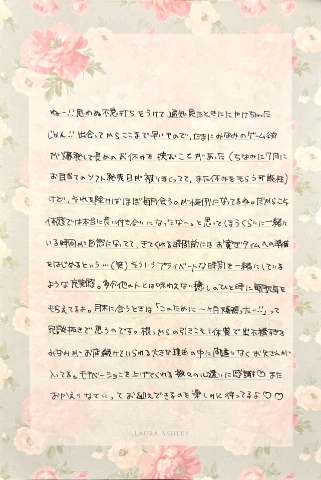 ねー!! 思わぬ不意打ちをうけて、通知見たときににやけちゃった
じゃん!! 出会ってからここまで早いもので、たまにみなみのゲーム欲
が爆発して長めのお休みを挟むことがあった(ちなみに7月に
お目当てのソフト発売日が被りまくってて、また休みをもらう可能性)
けど、それを除けばほぼ毎月会うのが恒例になってるね。だからこそ
体感では本当に長い付き合いになったなーって思ってる(ほうくらいに一緒に
いる時間が自然になってて、きてくれる時間前にはお寛ぎタイムへの準備
をはじめるという…(笑) そういうプライベートな時間を一緒にしている
ような充実感。多分他の人とは味わえない癒しのひと時に毎回
もらえてるよ。月末に会うときは「このために一ヶ月頑張ったー!!」って
冗談抜きで思うのです。根っからの引きこもり体質で出不精すぎる
みなみがお店続けていられる大きな理由の中に間違いなくお兄さんが
入ってる。モチベーションを上げてくれる数々の心遣いに感謝 また
おかえりなさいってお迎えできるのを楽しみに待ってるよ♡♡
LAURA ASHLEY